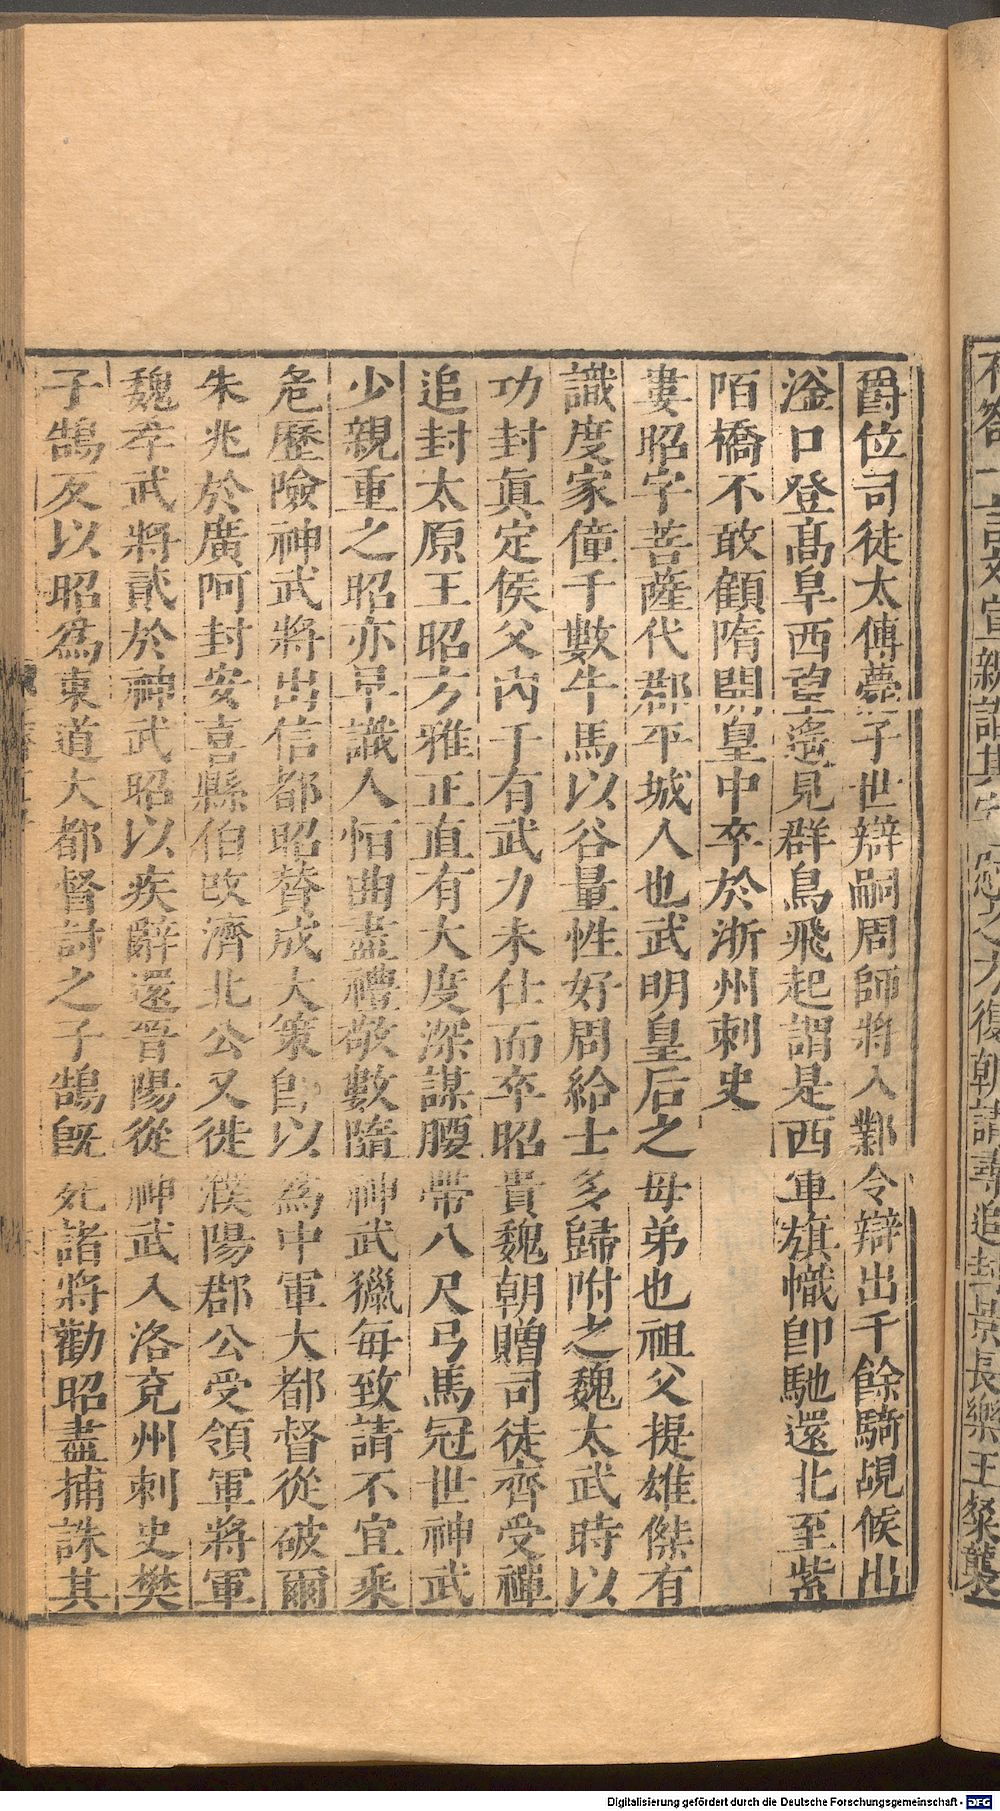 爵位司徒太傅薨子世辯嗣周師將入鄴令辯出千餘騎覘候出
滏口登高阜西望遥見群鳥飛起謂是西軍旗幟即馳還北至紫
陌橋不敢顧隋開皇中卒於浙州刺史
婁昭字菩薩代郡平城人也武明皇后之母弟也祖父提雄傑有
識度家僮千數牛馬以谷量性好周給士多歸附之魏太武時以
功封眞定侯父內干有武力未仕而卒昭貴魏朝贈司徒齊受禪
追封太原王昭方雅正直有大度深謀腰帶八尺弓馬冠世神武
少親重之昭亦早識人恒曲盡禮敬數隨神武獵每致請不宜乘
危歷險神武將出信都昭贊成大策即以為中軍大都督從破爾
朱兆於廣阿封安喜縣伯改濟北公又徙濮陽郡公受領軍將軍
魏孝武將貳於神武昭以疾辭還晉陽從神武入洛兗州刺史樊
子鵠反以昭為東道大都督討之子鵠既死諸將勸昭盡捕誅其
Digitalisierung gefördert durch die Deutsche Forschungsgemeinschaft - DFG